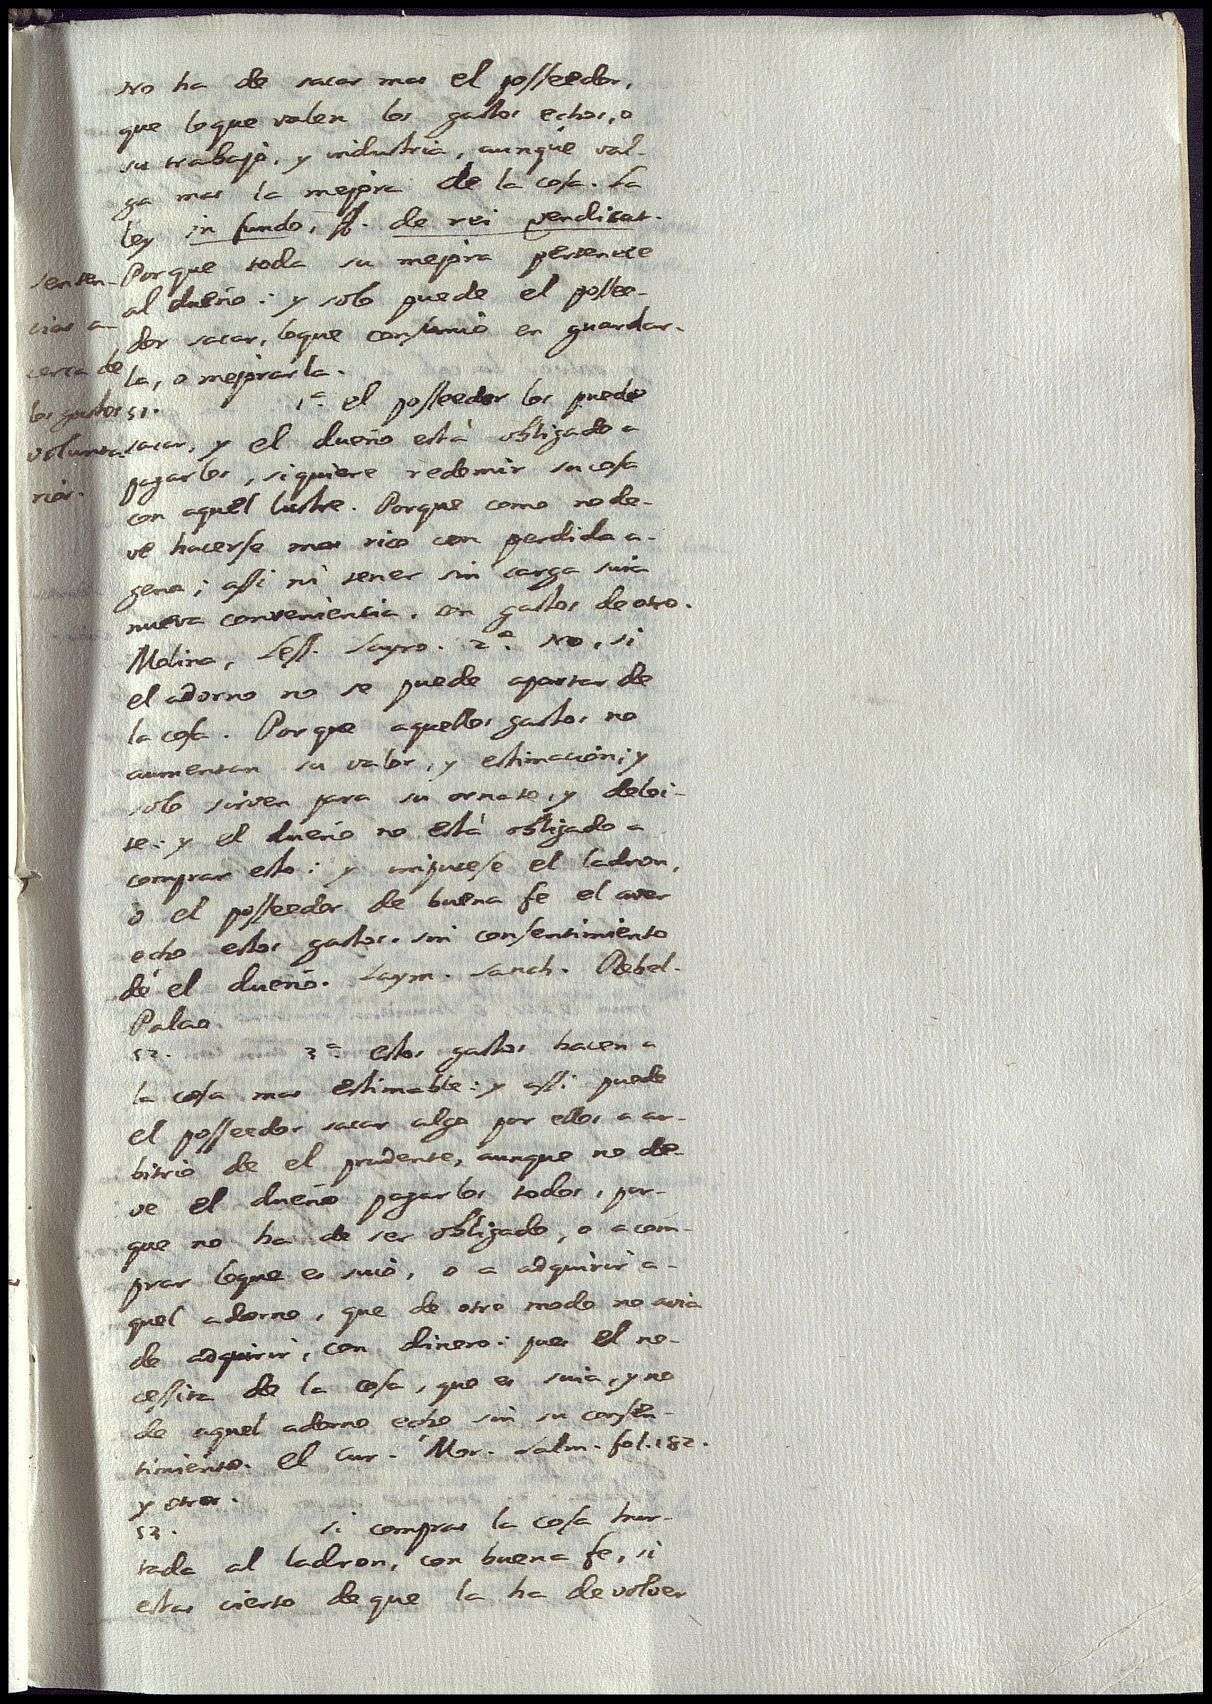 No ha de sacar mas el posseedor,
que loque valen los gastos echos, o
su trabajo, y industria, aunque val-
ga mas la mejora de la cosa. La
ley in fundo, ff. de rei vendicat.
Porque toda su mejora pertenece
al dueño: y solo puede el possee-
dor sacar, loque consumió en guardar-
la, o mejorarla.
senten-
cias a-
cerca de
los gastos
volunta-
rios.
51. 1ª el posseedor los puede
sacar, y el dueño está obligado a
pagarlos, siquiere redemir sucosa
con aquel lustre. Porque como node-
ve hacerse mas rico con perdida a-
gena; assi ni tener sin carga suia
nueva conveniencia, con gastos de otro.
Molina, Less. Sayro. 2ª. No, si
el adorno no se puede apartar de
la cosa. Porque aquellos gastos no
aumentan su valor, y estimacion; y
solo sirven para su ornato, y delei-
te: y el dueño no está obligado a
comprar esto: y imputese el ladron,
o el posseedor de buena fe el aver
echo estos gastos, sin consentimiento
de el dueño. Laym. Sanch. Rebel.
Palao
52. 3ª estos gastos hacen a
la cosa mas estimable: y assi puede
el posseedor sacar algo por ellos a ar-
bitrio de el prudente, aunque no de-
ve el dueño pagarlos todos, por-
que no ha de ser obligado, o a com-
prar loque es suio, o a adquirir a-
quel adorno, que de otro modo no avia
de adquirir, con dinero: pues el ne-
cessita de la cosa, que es suia, y no
de aquel adorno echo sin su consen-
timiento. el Cur. Mor. Salm. fol. 182.
y otros.
53. si compras la cosa hur-
tada al ladron, con buena fe, si
estas cierto de que la ha de volver